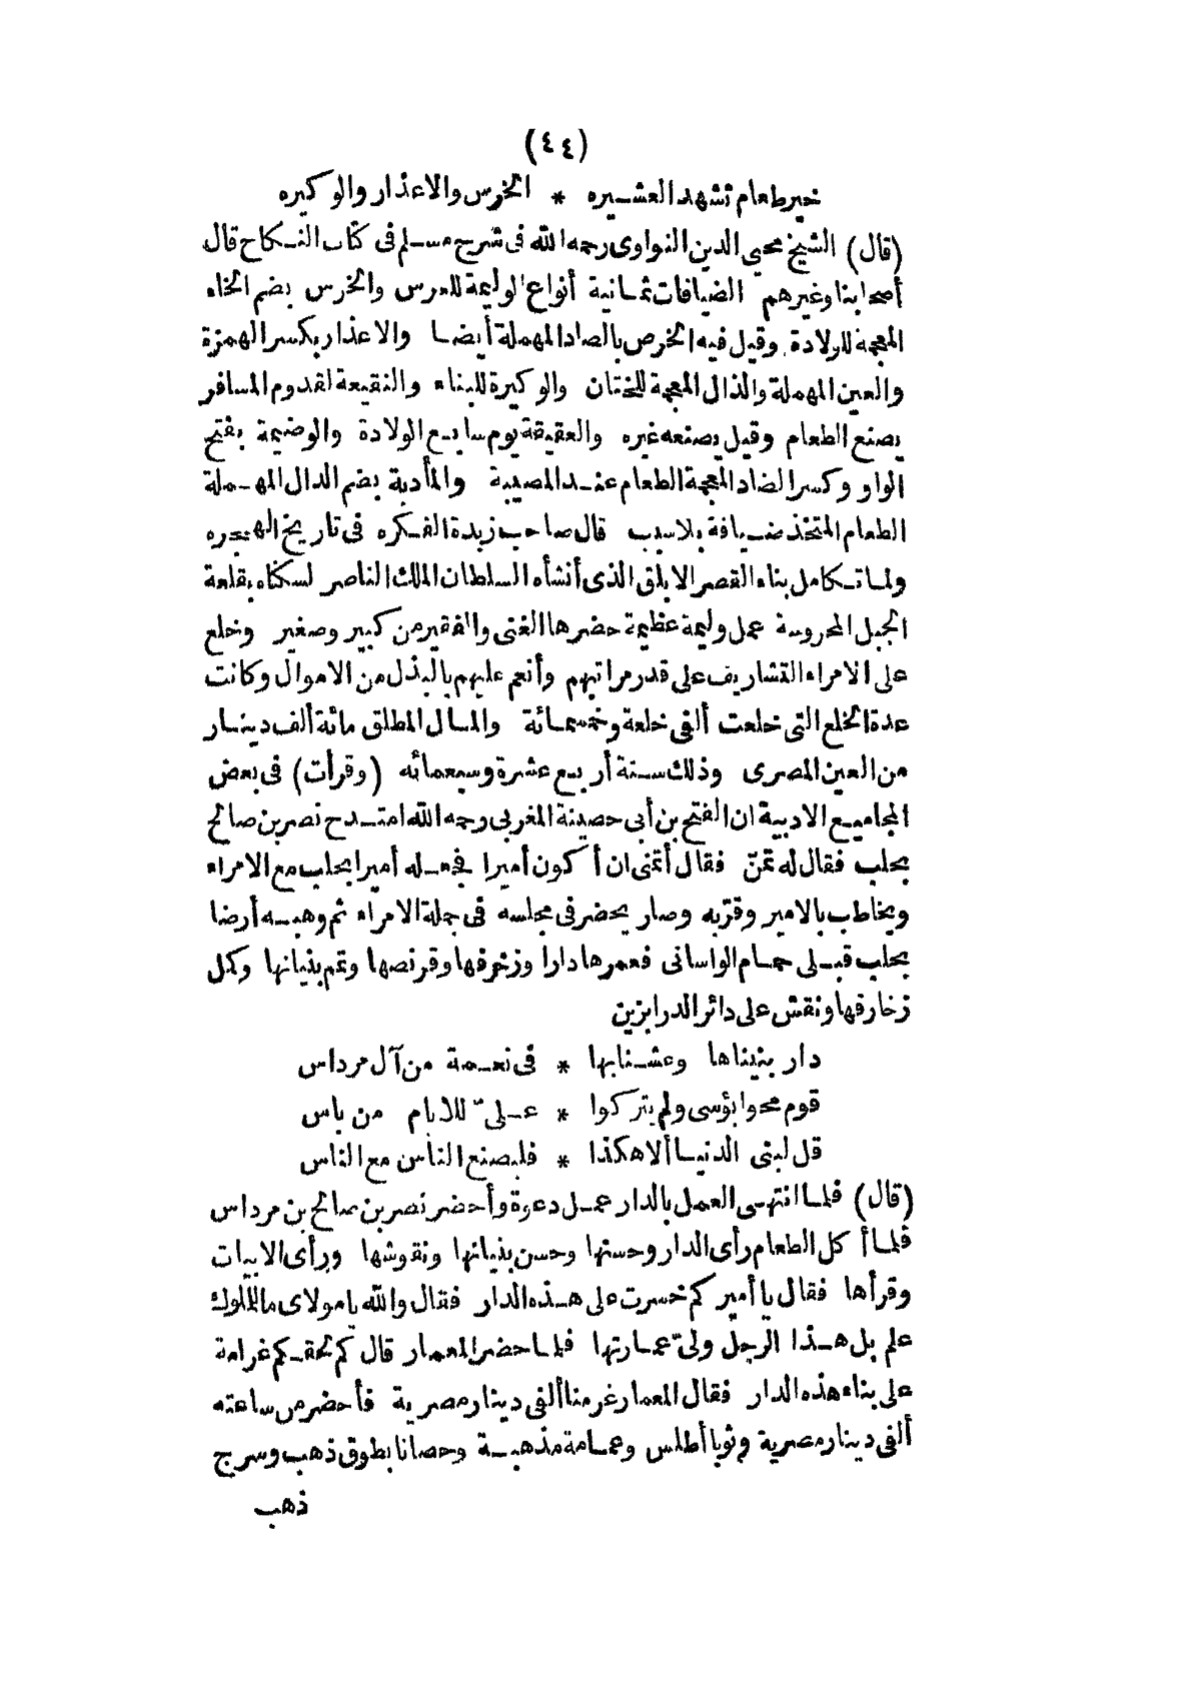 (٤٤)
خير طعام تشهد العشيره * الخرس والاعذار والوكيره
(قال) الشيخ محيي الدين النواوى رحمه الله فى شرح مسلم فى كتاب النكاح قال
أصحابنا وغيرهم الضيافات ثمانية أنواع الوليمة للعرس والخرس بضم الخاء
المعجمة للولادة وقيل فيه الخرص بالصاد المهملة أيضا والاعذار بكسر الهمزة
والعين المهملة والذال المعجمة للختان والوكيرة للبناء والنقيعة لقدوم المسافر
يصنع الطعام وقيل يصنعه غيره والعقيقة يوم سابع الولادة والوضيمة بفتح
الواو وكسر الضاد المعجمة الطعام عند المصيبة والمأدبة بضم الدال المهملة
الطعام المتخذ ضيافة بلا سبب قال صاحب زبدة الفكره فى تاريخ الهجره
ولما تكامل بناء القصر الابلق الذى أنشأه السلطان الملك الناصر لسكناه بقلعة
الجبل المحروسة عمل وليمة عظيمة حضرها الغنى والفقير من كبير وصغير وخلع
على الامراء التشاريف على قدر مراتبهم وأنعم عليهم بالبذل من الاموال وكانت
عدة الخلع التى خلعت ألفى خلعة وخمسمائة والمال المطلق مائة ألف دينار
من العين المصرى وذلك سنة أربع عشرة وسبعمائه (وقرأت) فى بعض
المجاميع الادبية ان الفتح بن أبى حصينة المغربى رحمه الله امتدح نصر بن صالح
بحلب فقال له تمنّ فقال أتمنى ان أكون أميرا فجعله أميرا بحلب مع الامراء
ويخاطب بالامير وقربه وصار يحضر فى مجلسه فى جملة الامراء ثم وهبه أرضا
بحلب قبلى حمام الواسانى فعمرها دارا وزخرفها وقرنصها وتمم بنيانها وكمل
زخارفها ونقش على دائر الدرابزين
دار بنيناها وعشنا بها * فى نعمة من آل مرداس
قوم محوا بؤسى ولم يتركوا * علىّ للايام من باس
قل لبنى الدنيا ألا هكذا * فليصنع الناس مع الناس
(قال) فلما انتهى العمل بالدار عمل دعوة وأحضر نصر بن صالح بن مرداس
فلما أكل الطعام رأى الدار وحسنها وحسن بنيانها ونقوشها ورأى الابيات
وقرأها فقال يا أمير كم خسرت على هذه الدار فقال والله يا مولاى ما للملوك
علم بل هذا الرجل ولىّ عمارتها فلما حضر المعمار قال كم لحقكم غرامة
على بناء هذه الدار فقال المعمار غرمنا ألفى دينار مصرية فأحضر من ساعته
ألفى دينار مصرية وثوبا أطلس وعمامة مذهبة وحصانا بطوق ذهب وسرج
ذهب